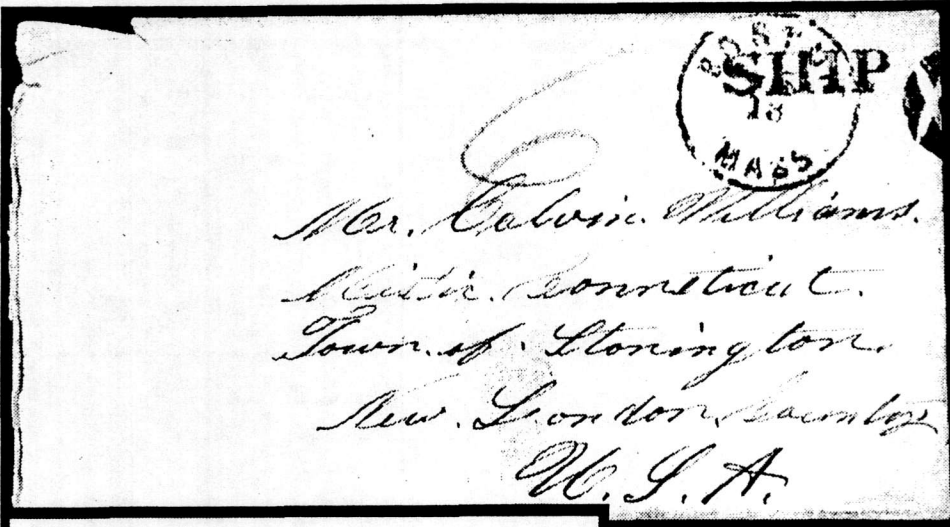 BOSTON
SHIP
18
MASS
Mr. Calvin. Williams.
Mistic. Conneticut.
Town. of. Stonington.
New. London. County
U. S. A.